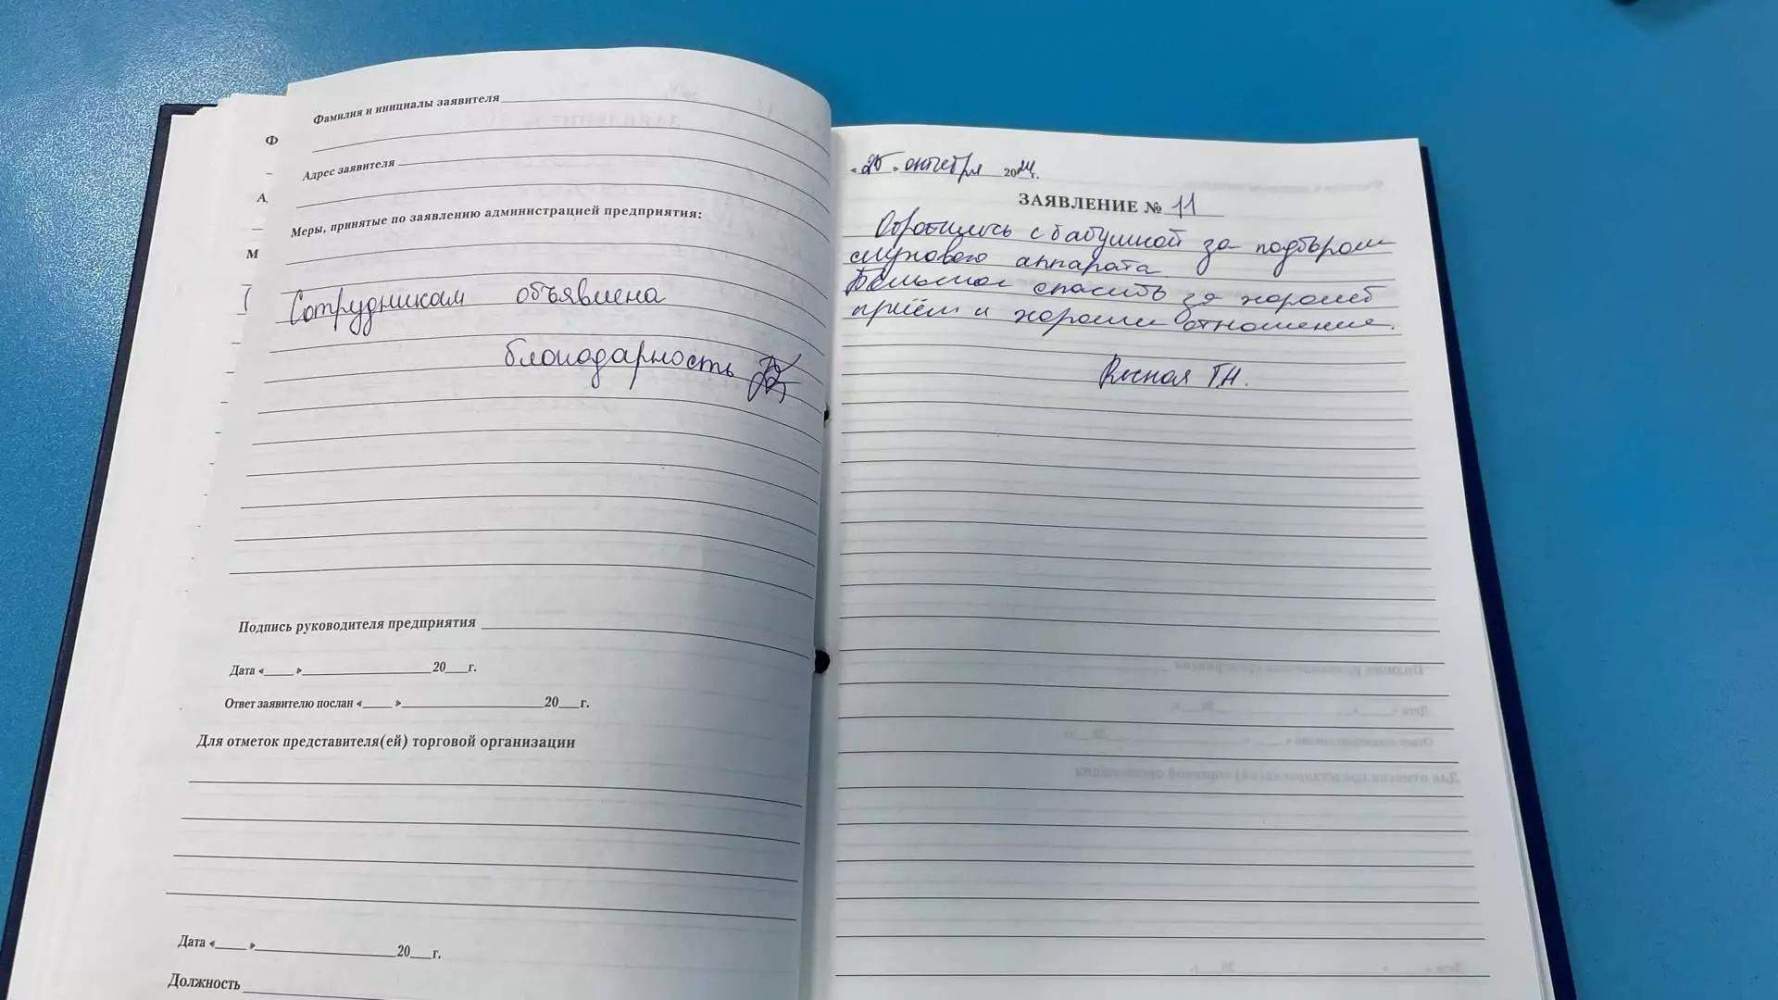 Фамилия и инициалы заявителя
Адрес заявителя
Меры, принятые по заявлению администрацией предприятия:
Сотрудникам объявлена
благодарность
Подпись руководителя предприятия
Дата « » 20 г.
Ответ заявителю послан « » 20 г.
Для отметок представителя(ей) торговой организации
Дата « » 20 г.
Должность
Ф
А
М
« » октября 2024г.
ЗАЯВЛЕНИЕ № 11
Обратились с бабушкой за подбором
слухового аппарата
Большое спасибо за хороший
приём и хорошее отношение.
Т.Н.